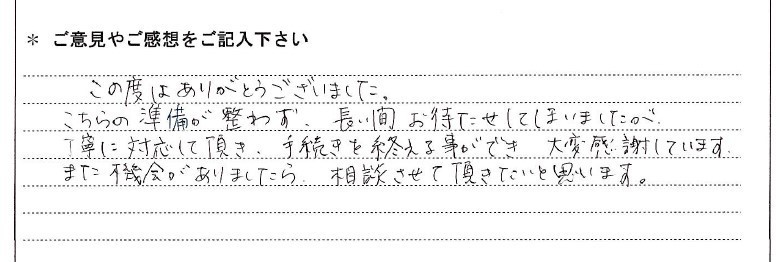 * ご意見やご感想をご記入下さい
この度はありがとうございました。
こちらの準備が整わず、長い間お待たせしてしまいましたが、
丁寧に対応して頂き、手続きを終える事ができ 大変感謝しています。
また機会がありましたら、相談させて頂きたいと思います。